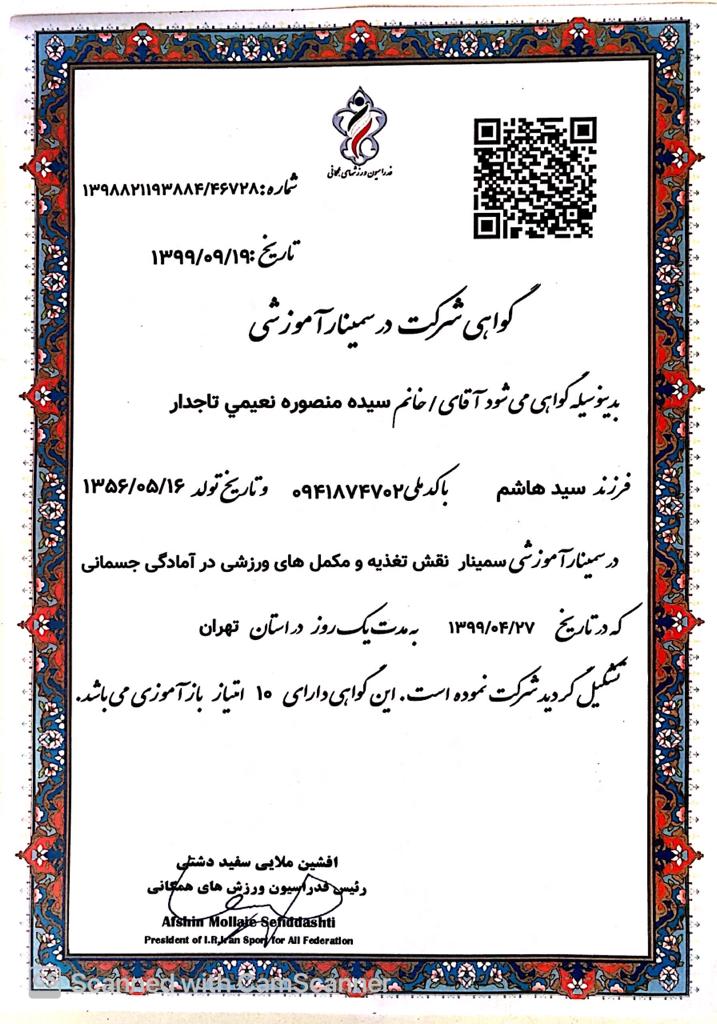 فدراسیون ورزشهای همگانی
شماره: ۱۳۹۸۸۲۱۱۹۳۸۸۴/۴۶۷۲۸
تاریخ: ۱۳۹۹/۰۹/۱۹
گواهی شرکت در سمینار آموزشی
بدینوسیله گواهی می شود آقای / خانم سیده منصوره نعيمي تاجدار
فرزند سید هاشم با کد ملی ۰۹۴۱۸۷۴۷۰۲ و تاریخ تولد ۱۳۵۶/۰۵/۱۶
در سمینار آموزشی سمینار نقش تغذیه و مکمل های ورزشی در آمادگی جسمانی
که در تاریخ ۱۳۹۹/۰۴/۲۷ به مدت یک روز در استان تهران
تشکیل گردید شرکت نموده است. این گواهی دارای ۱۰ امتیاز بازآموزی می باشد.
افشین ملایی سفید دشتی
رئیس فدراسیون ورزش های همگانی
Afshin Mollaie Sefiddashti
President of I.R.Iran Sport for All Federation
Scanned with CamScanner